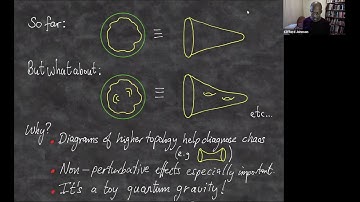 So far:
≡
But what about:
≡
etc...
Why?
• Diagrams of higher topology help diagnose chaos
(e.g. )
• Non-perturbative effects especially important.
• It's a toy quantum gravity!
Clifford Johnson